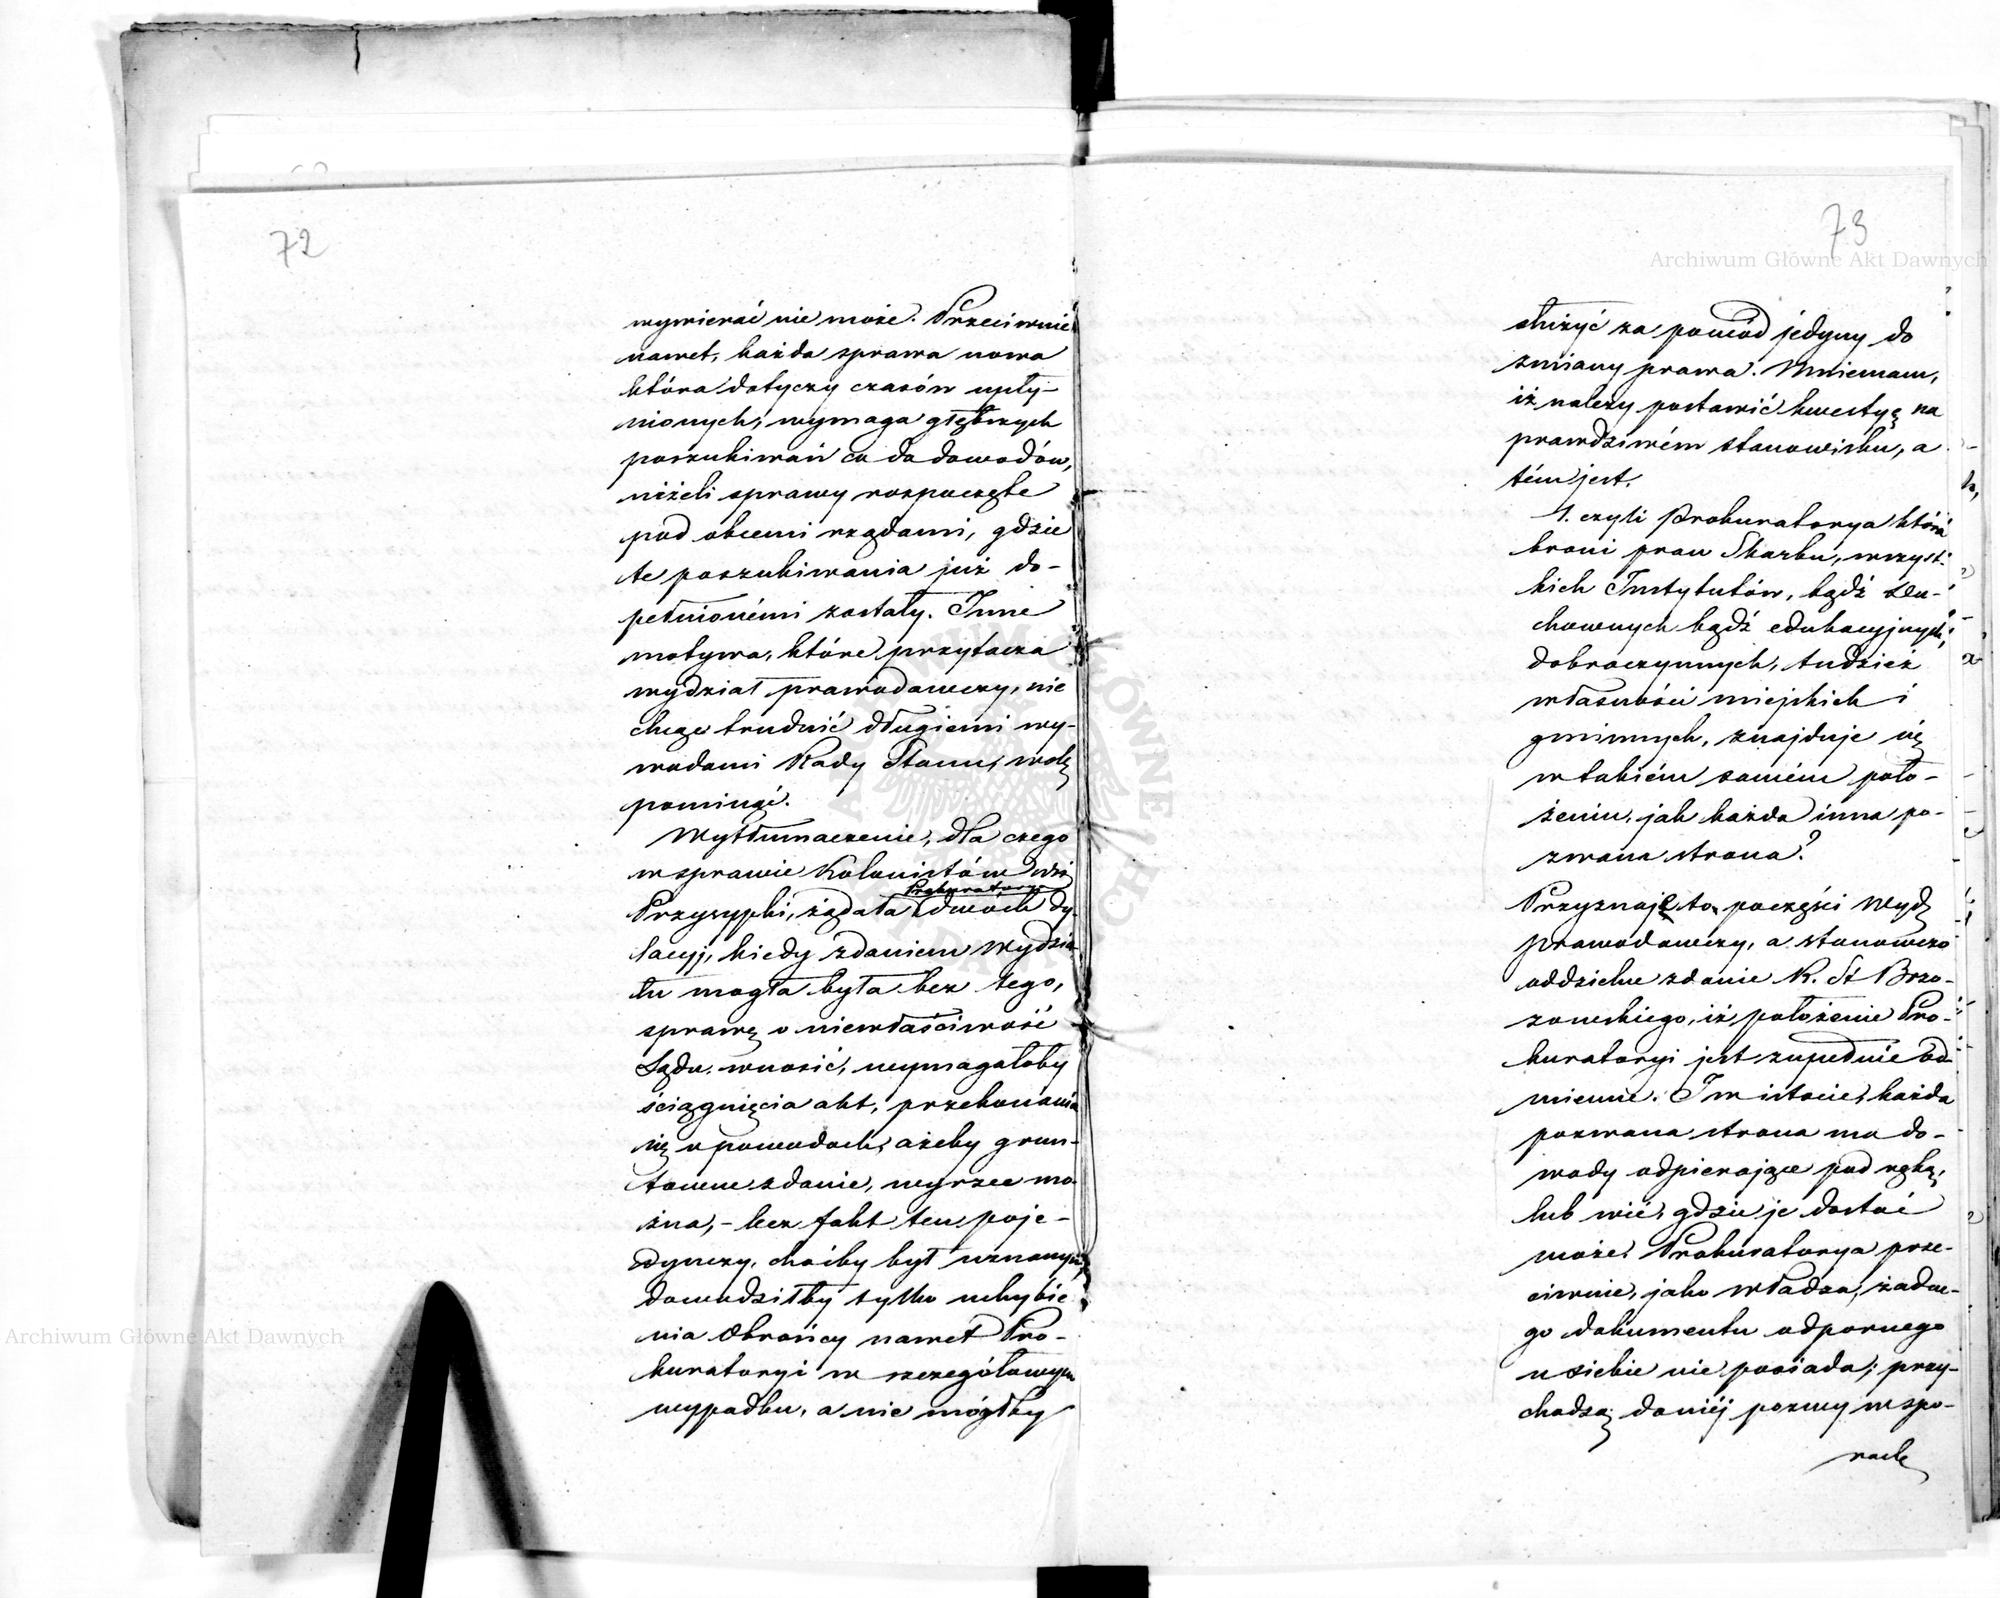 72
wywierać nie może. Przeciwnie
nawet, każda sprawa nowa
która dotyczy czasów upły-
nionych, wymaga głębszych
poszukiwań co do dowodów,
niżeli sprawy rozpoczęte
pod obcemi rządami, gdzie
te poszukiwania już do-
pełnionémi zostały. Inne
motywa, które przytacza
wydział prawodawczy, nie
chcąc trudnić długiemi wy-
wodami Rady Stanu, wolę
pominąć.
Wytłumaczenie, dla czego
w sprawie Kolonistów wsi
Prokuratorya
Przysypki, żądała dwóch dy-
lacyj, kiedy zdaniem Wydzia
łu mogła była bez tego,
sprawę o niewłaściwość
Sądu wnosić, wymagałoby
ściągnięcia akt, przekonania
się o powodach, ażeby grun-
towne zdanie, wyrzec mo
żna, – lecz fakt ten poje-
dynczy, choćby był uznanym,
dowodziłby tylko uchybie
nia Obrońcy nawet Pro-
kuratoryi w szczegółowym
wypadku, a nie mógłby
73
Archiwum Główne Akt Dawnych
służyć za powód jedyny do
zmiany prawa. Mniemam,
iż należy postawić kwestyę na
prawdziwém stanowisku, a
tém jest.
1. czyli Prokuratorya która
broni praw Skarbu, wszyst-
kich Instytutów, bądź du-
chownych bądź edukacyjnych,
dobroczynnych, tudzież
własności miejskich i
gminnych, znajduje się
w takiém samém poło-
żeniu, jak każda inna po-
zwana strona?
Przyznaje to po części Wydz
prawodawczy, a stanowczo
oddzielne zdanie R. St Brzo-
zowskiego, iż położenie Pro-
kuratoryi jest zupełnie od-
mienne. I w istocie, każda
pozwana strona ma do-
wody odpierające pod ręką,
lub wié, gdzie je dostać
może. Prokuratorya prze-
ciwnie, jako władza, żadne-
go dokumentu odpornego
u siebie nie posiada; przy-
chodzą do niéj pozwy w spo-
rach
Archiwum Główne Akt Dawnych